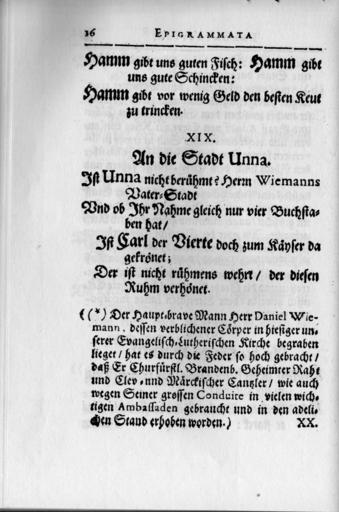 16 EPIGRAMMATA
Hamm gibt uns guten Fisch: Hamm gibt
uns gute Schincken:
Hamm gibt vor wenig Geld den besten Keut
zu trincken.
XIX.
An die Stadt Unna.
Ist Unna nicht berühmt? Herrn Wiemanns
Vater-Stadt
Und ob Ihr Nahme gleich nur vier Buchsta-
ben hat/
Ist Carl der Vierte doch zum Käyser da
gekrönet;
Der ist nicht rühmens wehrt/ der diesen
Ruhm verhönet.
((*) Der Haupt-brave Mann Herr Daniel Wie-
mann, dessen verblichener Cörper in hiesiger un-
serer Evangelisch-Lutherischen Kirche begraben
lieget/ hat es durch die Feder so hoch gebracht/
daß Er Churfürstl. Brandenb. Geheimter Raht
und Clev- und Märckischer Cantzler/ wie auch
wegen Seiner grossen Conduite in vielen wich-
tigen Ambassaden gebraucht und in den adeli-
chen Stand erhoben worden.) XX.